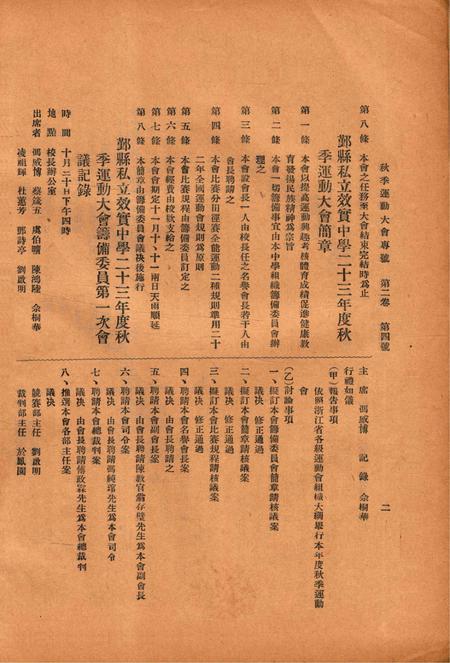 秋季運動大會專號　第二卷　第四號
二
第八條　本會之任務至大會結束完結時爲止
鄞縣私立效實中學二十三年度秋
季運動大會簡章
第一條　本會以提高運動興趣考核體育成績促進健康敎
育發揚民族精神爲宗旨
第二條　本會一切籌備事宜由本中學組織籌備委員會辦
理之
第三條　本會設會長一人由校長任之名譽會長若干人由
會長聘請之
第四條　本會比賽分田徑賽全能運動二種規則準用二十
二年全國運動會規則爲原則
第五條　本會比賽規程由籌備委員訂定之
第六條　本會經費由校欵支給之
第七條　本會會期定十一月十、十一兩日天雨順延
第八條　本簡章由籌備委員會議決後施行
鄞縣私立效實中學二十三年度秋
季運動大會籌備委員第一次會
議記錄
時間　十月二十日下午四時
地點　校長辦公室
出席者　馮威博　蔡箴五　虞伯曠　陳鴻陵　余桐華
凌祖輝　杜蕙芳　鄧詩亭　劉啟明
主席　馮威博　記錄　余桐華
行禮如儀
(甲)報告事項
依照浙江省各級運動會組織大綱舉行本年度秋季運動
會
(乙)討論事項
一、擬訂本會籌備委員會簡章請核議案
議決　修正通過
二、擬訂本會簡章請核議案
議決　修正通過
三、擬訂本會比賽規程請核議案
議決　修正通過
四、聘請本會名譽會長案
議決　由會長聘請之
五、聘請本會副會長案
議決　由會長聘請陳敎官翁存璧先生爲本會副會長
六、聘請本會司令案
議決　由會長聘請馮純琯先生爲本會司令
七、聘請本會總裁判案
議決　由會長聘請傅政霖先生爲本會總裁判
八、推選本會各部主任案
議決
競賽部主任　劉啟明
裁判部主任　於鳳園